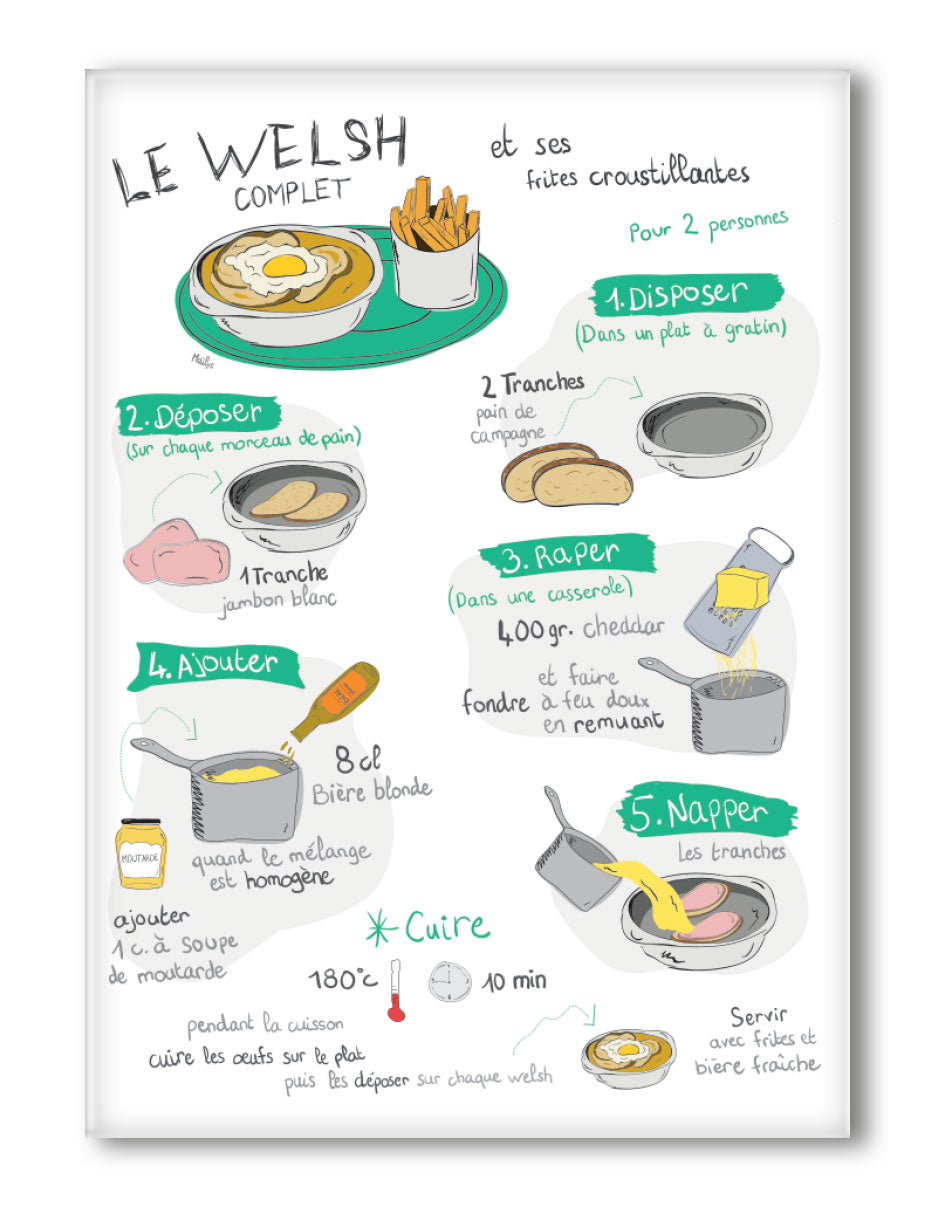 LE WELSH
COMPLET
et ses
frites croustillantes
Pour 2 personnes
1. Disposer
(Dans un plat à gratin)
2 Tranches
pain de
campagne
2. Déposer
(Sur chaque morceau de pain)
1 Tranche
jambon blanc
3. Raper
(Dans une casserole)
400gr. cheddar
et faire
fondre à feu doux
en remuant
4. Ajouter
8 cl
Bière blonde
MOUTARDE
quand le mélange
est homogène
ajouter
1 c. à soupe
de moutarde
5. Napper
Les tranches
Cuire
180°c
10 min
pendant la cuisson
cuire les œufs sur le plat
puis les déposer sur chaque welsh
Servir
avec frites et
bière fraîche